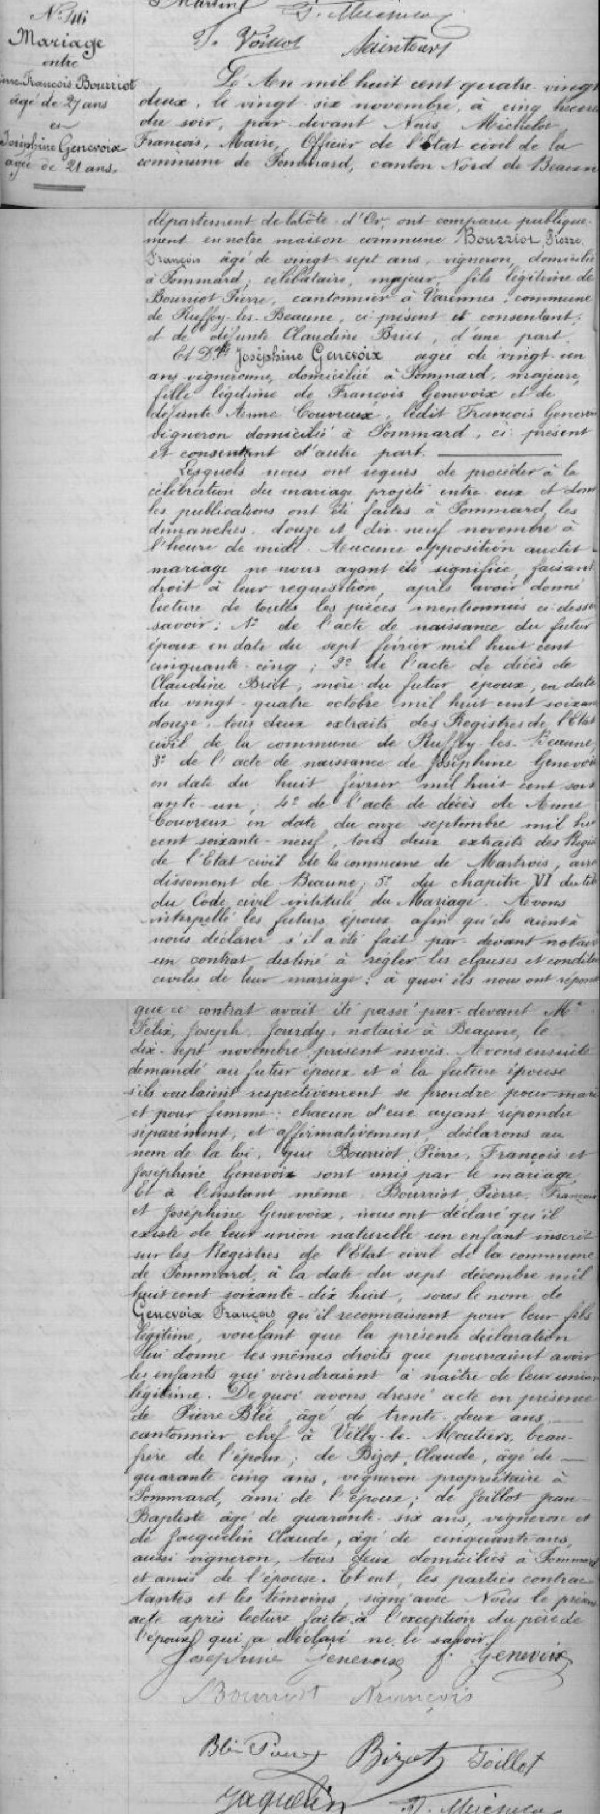 N° 46
Mariage
entre
François Bourriot
âgé de 27 ans
et
Joséphine Genevoix
agée de 21 ans.
J. Voillot
L'An mil huit cent quatre-vingt
deux, le vingt six novembre, à cinq heures
du soir, par devant Nous, Michelot
François, Maire, Officier de l'Etat civil de la
commune de Pommard, canton Nord de Beaune
département de la Côte-d'Or, ont comparu publique-
ment en notre maison commune Bourriot, Pierre,
François âgé de vingt sept ans, vigneron, domicilié
à Pommard, célibataire, majeur, fils légitime de
Bourriot Pierre, cantonnier à Varennes, commune
de Ruffey-les-Beaune, ci-présent et consentant,
et de défunte Claudine Briet, d'une part.
Et Dlle Joséphine Genevoix agée de vingt-un
ans vigneronne, domiciliée à Pommard, majeure,
fille légitime de François Genevoix et de
défunte Anne Couvreux, ledit François Genev
vigneron domicilié à Pommard, ci-présent
et consentant d'autre part.
Lesquels nous ont requis de procéder à la
célébration du mariage projeté entre eux et dont
les publications ont été faites à Pommard, les
dimanches, douze et dix-neuf novembre à
l'heure de midi. Aucune opposition audit
mariage ne nous ayant été signifiée, faisant
droit à leur requisition, après avoir donné
lecture de toutes les pièces mentionnées ci-dessus
savoir: 1° de l'acte de naissance du futur
époux en date du sept février mil huit cent
cinquante-cinq; 2° de l'acte de décès de
Claudine Briet, mère du futur époux, en date
du vingt-quatre octobre mil huit cent soixan
douze, tous deux extraits des Registres de l'Etat
civil de la commune de Ruffey-les-Beaune,
3° de l'acte de naissance de Joséphine Genevoix
en date du huit février mil huit cent soix
ante-un; 4° de l'acte de décès de Anne
Couvreux en date du onze septembre mil hu
cent soixante-neuf, tous deux extraits des Regis
de l'Etat civil de la commune de Martrois, arro
dissement de Beaune; 5° du chapitre VI du titre
du Code civil intitulé du Mariage. Avons
interpellé les futurs époux afin qu'ils aient à
nous déclarer s'il a été fait par-devant notaire
un contrat destiné à régler les clauses et conditions
civiles de leur mariage: à quoi ils nous ont répondu
que ce contrat avait été passé par-devant Me
Félix, Joseph Jourdy, notaire à Beaune, le
dix-sept novembre, présent mois. Avons ensuite
demandé au futur époux et à la future épouse
s'ils voulaient respectivement se prendre pour mari
et pour femme; chacun d'eux ayant répondu
séparément, et affirmativement, déclarons au
nom de la loi, que Bourriot, Pierre, François et
Joséphine Genevoix sont unis par le mariage.
Et à l'instant même, Bourriot, Pierre, François
et Joséphine Genevoix, nous ont déclaré qu'il
existe de leur union naturelle un enfant inscrit
sur les Registres de l'Etat civil de la commune
de Pommard, à la date du sept décembre mil
huit cent soixante-dix huit, sous le nom de
Genevoix François qu'il reconnaissent pour leur fils
légitime, voulant que la présente déclaration
lui donne les mêmes droits que pourraient avoir
les enfants qui viendraient à naître de leur union
légitime. De quoi avons dressé acte en présence
de Pierre Blée, âgé de trente-deux ans,
cantonnier chef à Villy-le-Moutiers, beau-
frère de l'époux; de Bizot, Claude, âgé de
quarante cinq ans, vigneron propriétaire à
Pommard, ami de l'époux; de Joillot Jean-
Baptiste âgé de quarante-six ans, vigneron et
de Jacquelin Claude, âgé de cinquante ans,
aussi vigneron, tous deux domiciliés à Pommard
et amis de l'épouse. Et ont, les parties contrac-
tantes et les témoins, signé avec Nous le présent
acte après lecture faite, à l'exception du père de
l'époux qui a déclaré ne le savoir.
Joséphine Genevoix f. Genevoix
Bourriot François
Blée Pierre Bizot Joillot
Jaquelin